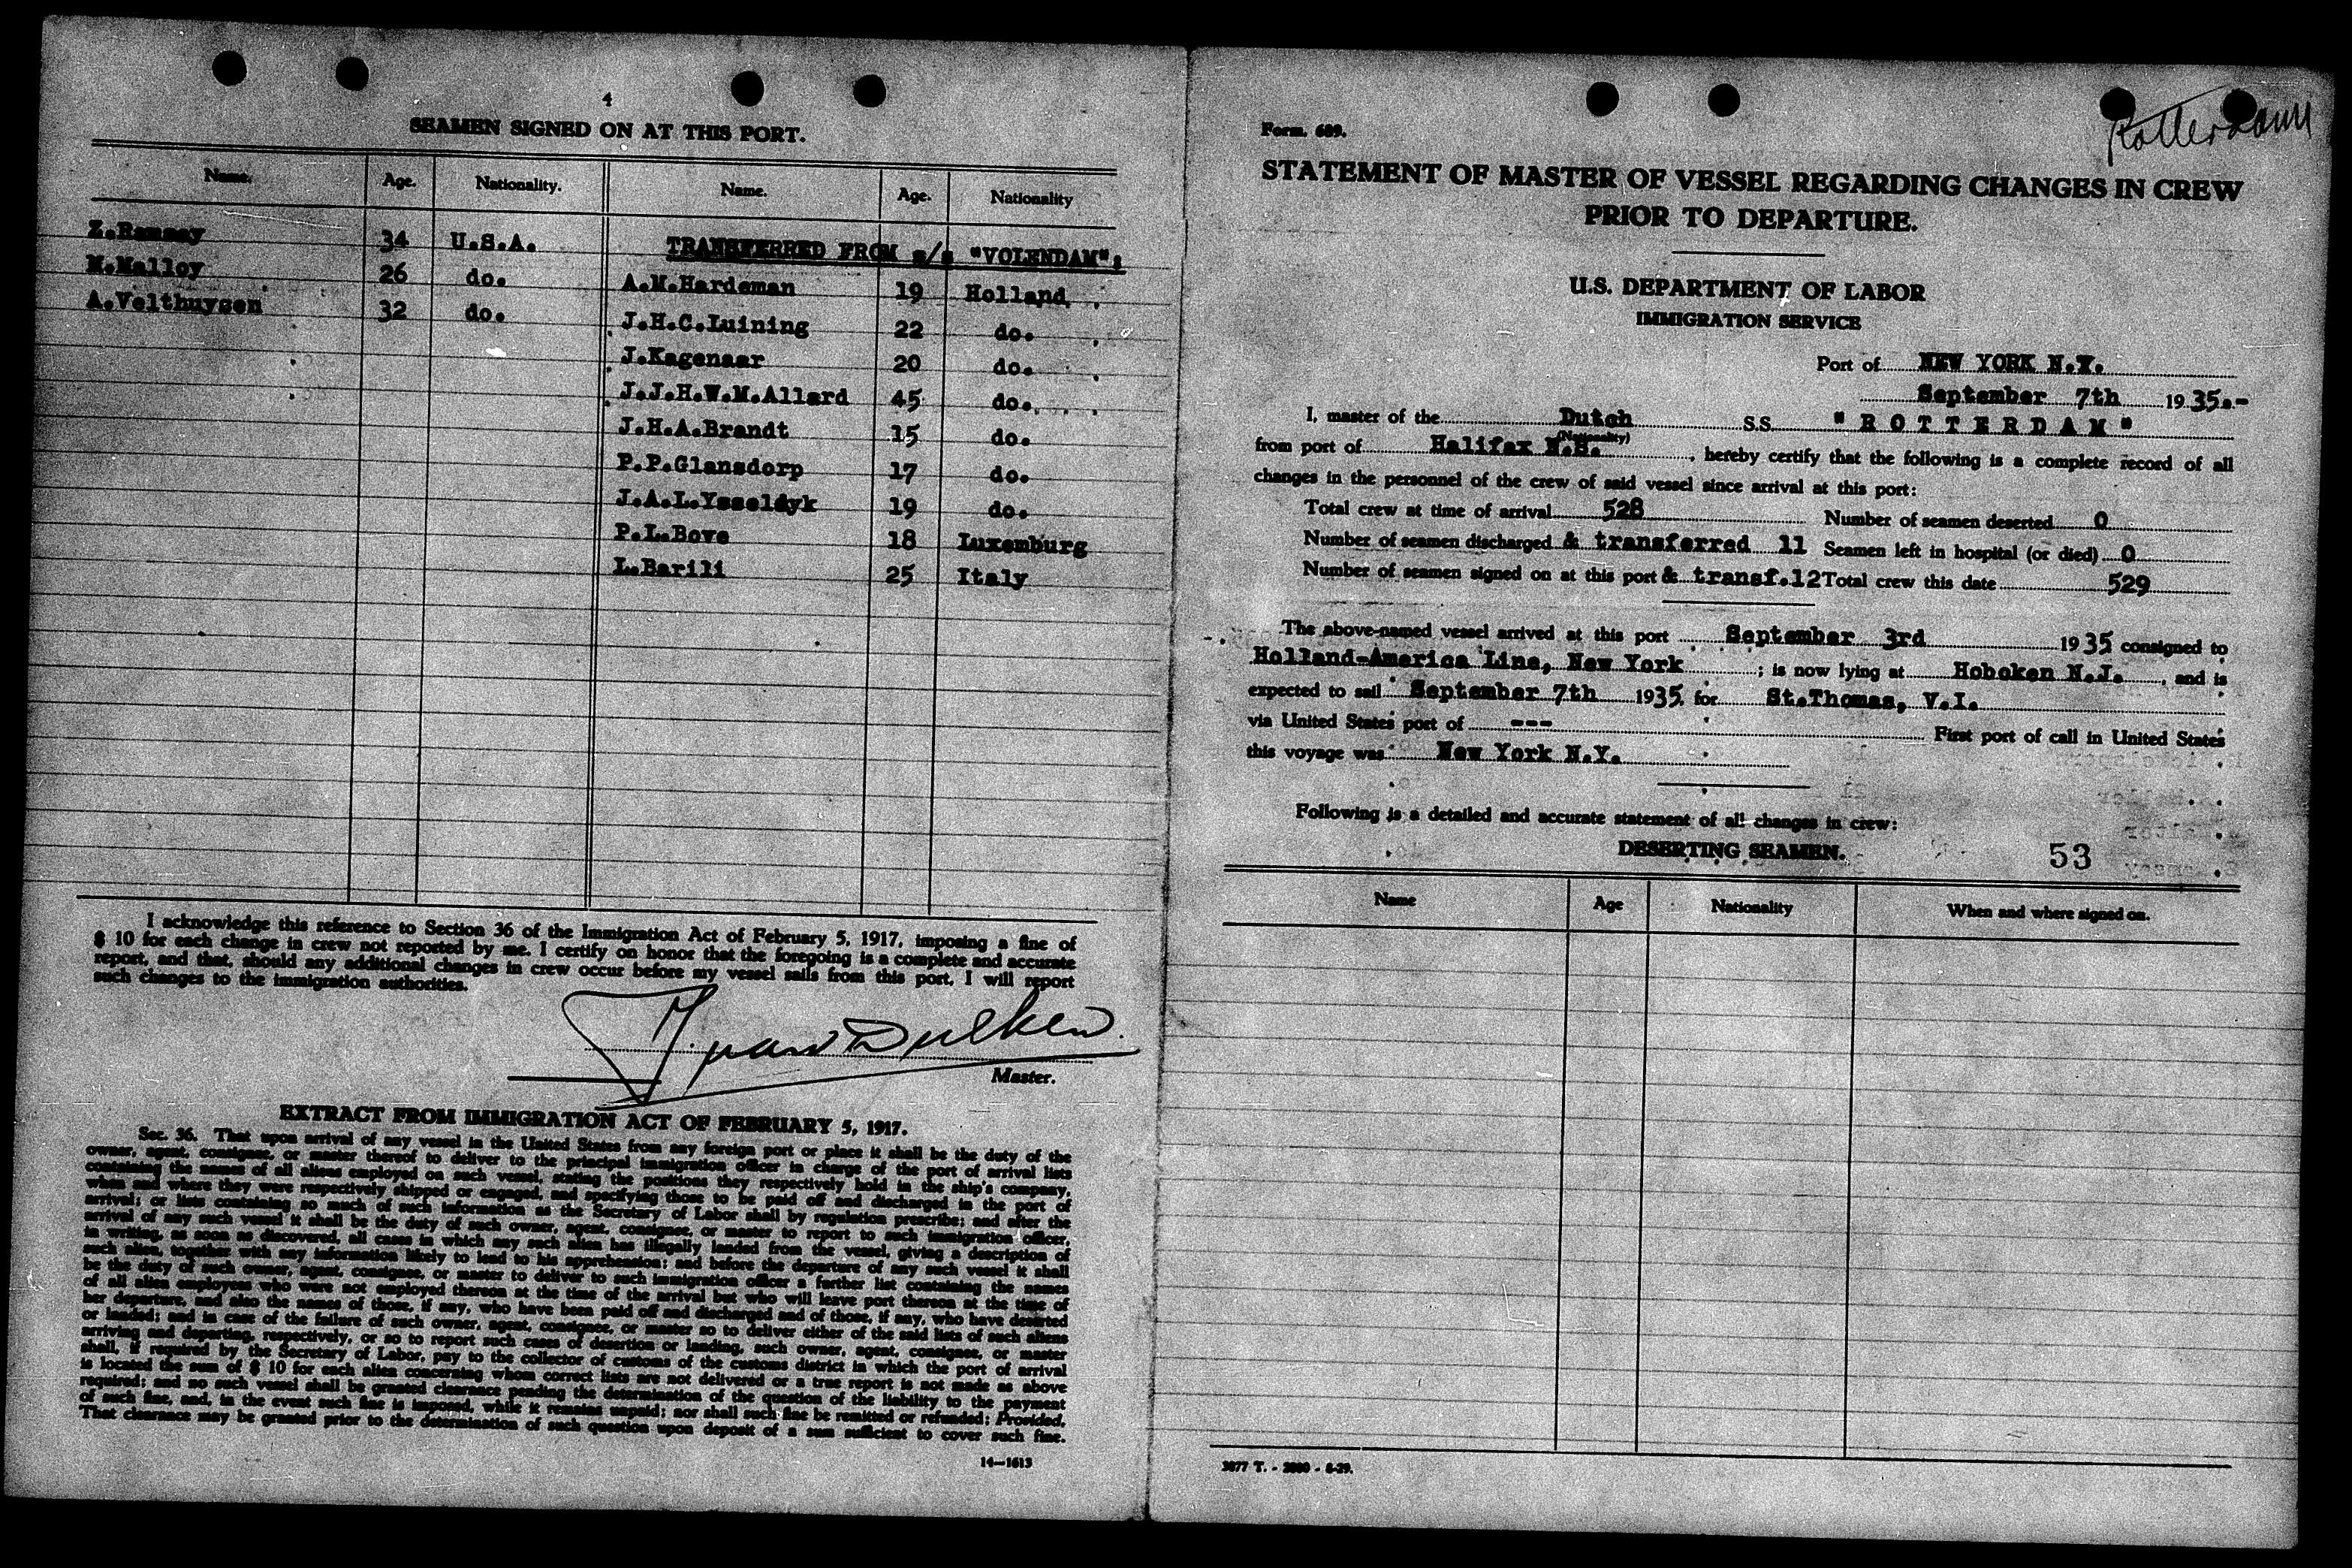 4
SEAMEN SIGNED ON AT THIS PORT.
Name. Age. Nationality. Name. Age. Nationality
Z.Ramsay 34 U.S.A. TRANSFERRED FROM s/s "VOLENDAM":
M.Malloy 26 do. A.M.Hardeman 19 Holland
A.Velthuysen 32 do. J.H.C.Luining 22 do.
J.Kagenaar 20 do.
J.J.H.W.M.Allard 45 do.
J.H.A.Brandt 15 do.
P.P.Glansdorp 17 do.
J.A.L.Ysseldyk 19 do.
P.L.Bove 18 Luxemburg
L.Barili 25 Italy
I acknowledge this reference to Section 36 of the Immigration Act of February 5, 1917, imposing a fine of
$ 10 for each change in crew not reported by me. I certify on honor that the foregoing is a complete and accurate
report, and that, should any additional changes in crew occur before my vessel sails from this port, I will report
such changes to the immigration authorities.
van Dulken
Master.
EXTRACT FROM IMMIGRATION ACT OF FEBRUARY 5, 1917.
Sec. 36. That upon arrival of any vessel in the United States from any foreign port or place it shall be the duty of the
owner, agent, consignee, or master thereof to deliver to the principal immigration officer in charge of the port of arrival lists
containing the names of all aliens employed on such vessel, stating the positions they respectively hold in the ship's company,
when and where they were respectively shipped or engaged, and specifying those to be paid off and discharged in the port of
arrival; or lists containing so much of such information as the Secretary of Labor shall by regulation prescribe; and after the
arrival of any such vessel it shall be the duty of such owner, agent, consignee, or master to report to such immigration officer,
in writing, as soon as discovered, all cases in which any such alien has illegally landed from the vessel, giving a description of
such alien, together with any information likely to lead to his apprehension; and before the departure of any such vessel it shall
be the duty of such owner, agent, consignee, or master to deliver to such immigration officer a further list containing the names
of all alien employees who were not employed thereon at the time of the arrival but who will leave port thereon at the time of
her departure, and also the names of those, if any, who have been paid off and discharged and of those, if any, who have deserted
or landed; and in case of the failure of such owner, agent, consignee, or master so to deliver either of the said lists of such aliens
arriving and departing, respectively, or so to report such cases of desertion or landing, such owner, agent, consignee, or master
shall, if required by the Secretary of Labor, pay to the collector of customs of the customs district in which the port of arrival
is located the sum of $ 10 for each alien concerning whom correct lists are not delivered or a true report is not made as above
required; and no such vessel shall be granted clearance pending the determination of the question of the liability to the payment
of such fine, and, in the event such fine is imposed, while it remains unpaid; nor shall such fine be remitted or refunded: Provided,
That clearance may be granted prior to the determination of such question upon deposit of a sum sufficient to cover such fine.
14—1613
Rotterdam
Form. 689.
STATEMENT OF MASTER OF VESSEL REGARDING CHANGES IN CREW
PRIOR TO DEPARTURE.
U.S. DEPARTMENT OF LABOR
IMMIGRATION SERVICE
Port of NEW YORK N.Y.
September 7th 1935.-
I, master of the Dutch S.S. " R O T T E R D A M "
(Nationality)
from port of Halifax N.S. , hereby certify that the following is a complete record of all
changes in the personnel of the crew of said vessel since arrival at this port:
Total crew at time of arrival 528 Number of seamen deserted 0
Number of seamen discharged & transferred 11 Seamen left in hospital (or died) 0
Number of seamen signed on at this port & transf.12 Total crew this date 529
The above-named vessel arrived at this port September 3rd 1935 consigned to
Holland-America Line, New York ; is now lying at Hoboken N.J. , and is
expected to sail September 7th 1935, for St.Thomas, V.I.
via United States port of --- First port of call in United States
this voyage was New York N.Y.
Following is a detailed and accurate statement of all changes in crew:
DESERTING SEAMEN.
53
Name Age Nationality When and where signed on.
3877 T. - 2000 - 8-29.